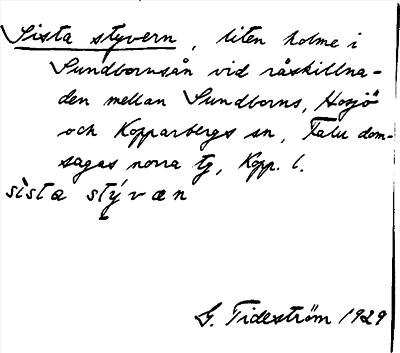 Sista styvern, liten holme i
Sundbornsån vid råskillna-
den mellan Sundborns, Hosjö
och Kopparbergs sn, Falu dom-
sagas norra tg, Kopp. l.
sista stývan
G. Tideström 1929